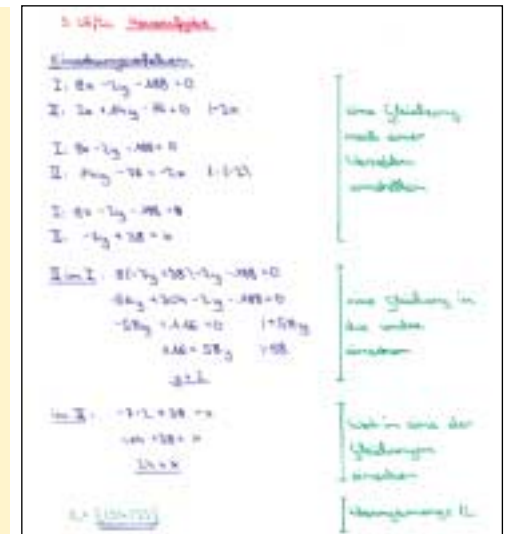 Einsetzungsverfahren
I: 8x - 2y - 188 = 0
II: 2x + 14y - 76 = 0 |-2x
I: 8x - 2y - 188 = 0
II: 14y - 76 = -2x |:(-2)
I: 8x - 2y - 188 = 0
II: -7y + 38 = x
II in I: 8(-7y + 38) - 2y - 188 = 0
-56y + 304 - 2y - 188 = 0
-58y + 116 = 0 |+58y
116 = 58y |:58
y = 2
in II: -7·2 + 38 = x
-14 + 38 = x
24 = x
eine Gleichung
nach einer
Variablen
umstellen
eine Gleichung in
die andere
einsetzen
Wert in eine der
Gleichungen
einsetzen
Lösungsmenge IL